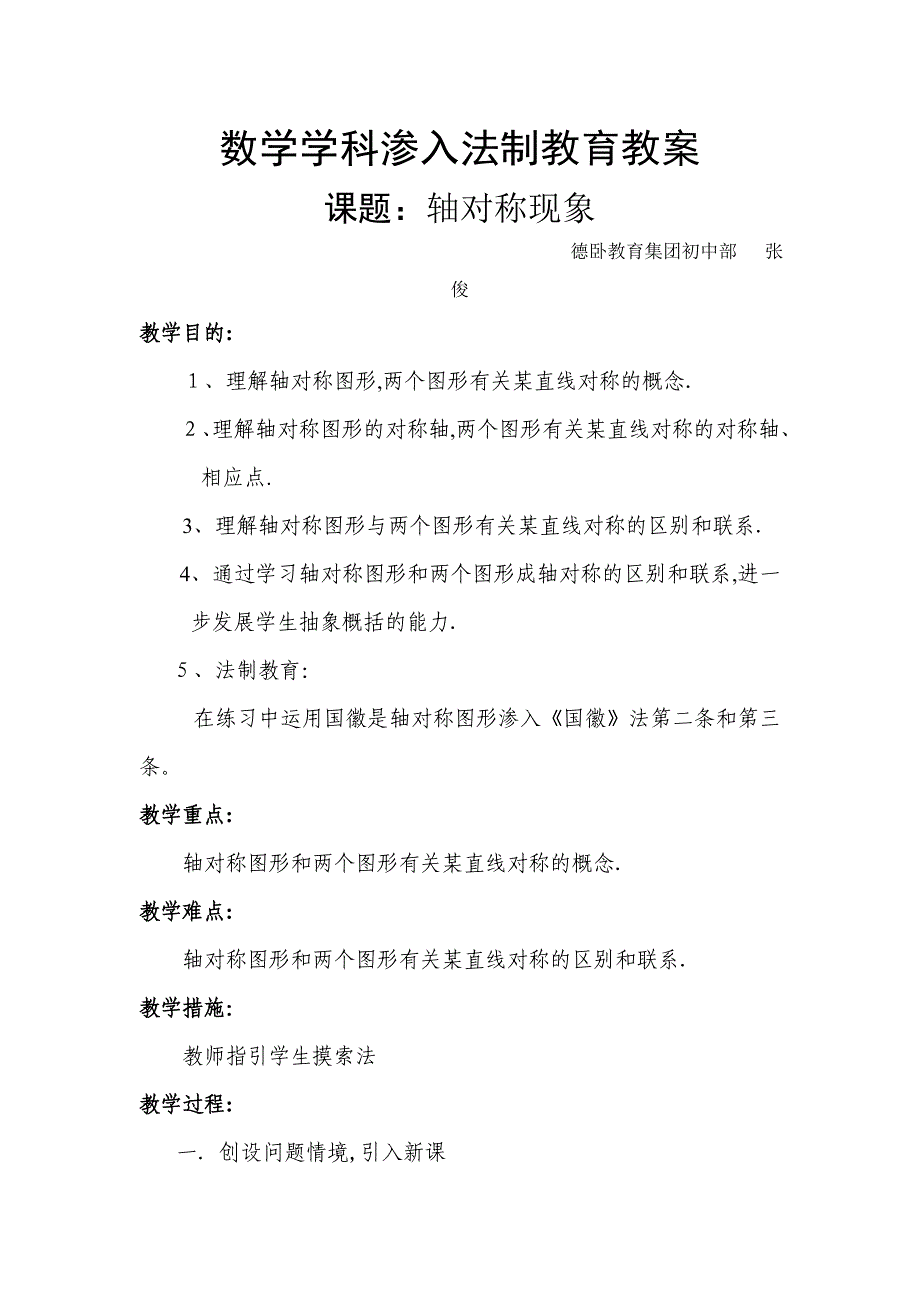 数学学科渗入法制教育教案
课题：轴对称现象
德卧教育集团初中部 张
俊
教学目的：
1、理解轴对称图形,两个图形有关某直线对称的概念.
2、理解轴对称图形的对称轴,两个图形有关某直线对称的对称轴、
相应点.
3、理解轴对称图形与两个图形有关某直线对称的区别和联系.
4、通过学习轴对称图形和两个图形成轴对称的区别和联系,进一
步发展学生抽象概括的能力.
5、法制教育:
在练习中运用国徽是轴对称图形渗入《国徽》法第二条和第三
条。
教学重点：
轴对称图形和两个图形有关某直线对称的概念.
教学难点：
轴对称图形和两个图形有关某直线对称的区别和联系.
教学措施：
教师指引学生摸索法
教学过程：
一．创设问题情境,引入新课